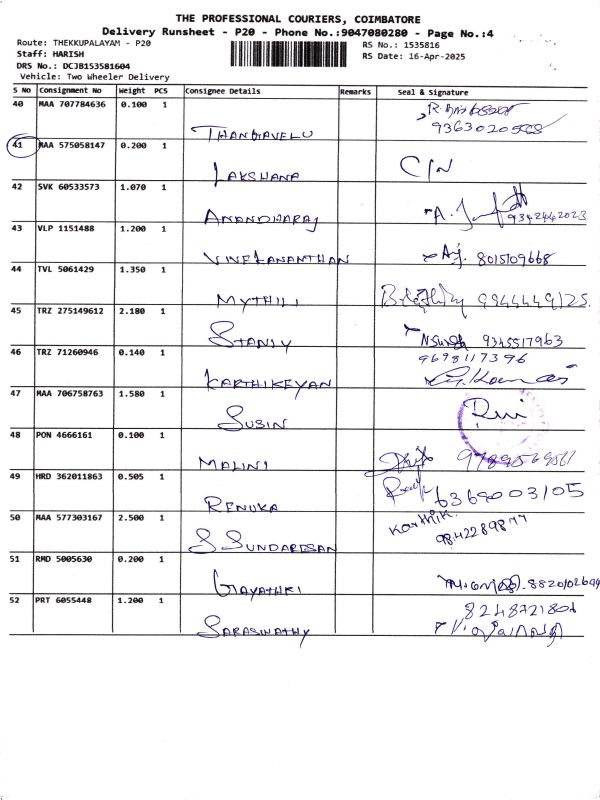 THE PROFESSIONAL COURIERS, COIMBATORE
Delivery Runsheet - P20 - Phone No.:9047080280 - Page No.:4
Route: THEKKUPALAYAM - P20
Staff: HARISH
DRS No.: DCJB153581604
Vehicle: Two Wheeler Delivery
RS No.: 1535816
RS Date: 16-Apr-2025
S No Consignment No Weight PCS Consignee Details Remarks Seal & Signature
40 MAA 707784636 0.100 1
THANGAVELU
41 MAA 575058147 0.200 1
LAKSHANA C/N
42 SVK 60533573 1.070 1
ANANDHARAJ 9342442023
43 VLP 1151488 1.200 1
8015109668
44 TVL 5061429 1.350 1
MYTHILI
45 TRZ 275149612 2.180 1
STANLY 9345517963
46 TRZ 71260946 0.140 1 9698117396
KARTHIKEYAN
47 MAA 706758763 1.580 1
SUBIN
48 PON 4666161 0.100 1
MALINI
49 HRD 362011863 0.505 1
RENUKA 6369003105
50 MAA 577303167 2.500 1 Karthik.
S SUNDARESAN
51 RMD 5005630 0.200 1
GAYATHRI
52 PRT 6055448 1.200 1